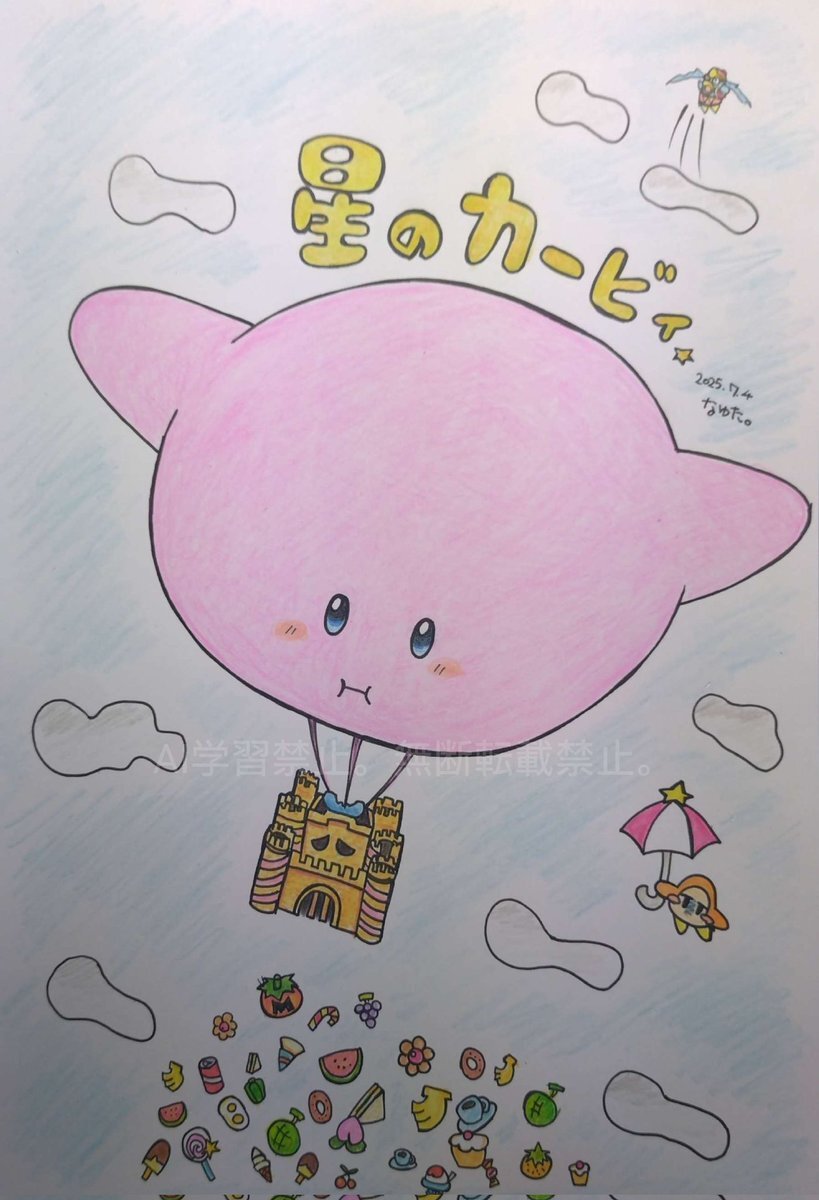 星のカービィ
2025.7.4
なゆた。
AI学習禁止。無断転載禁止。
M